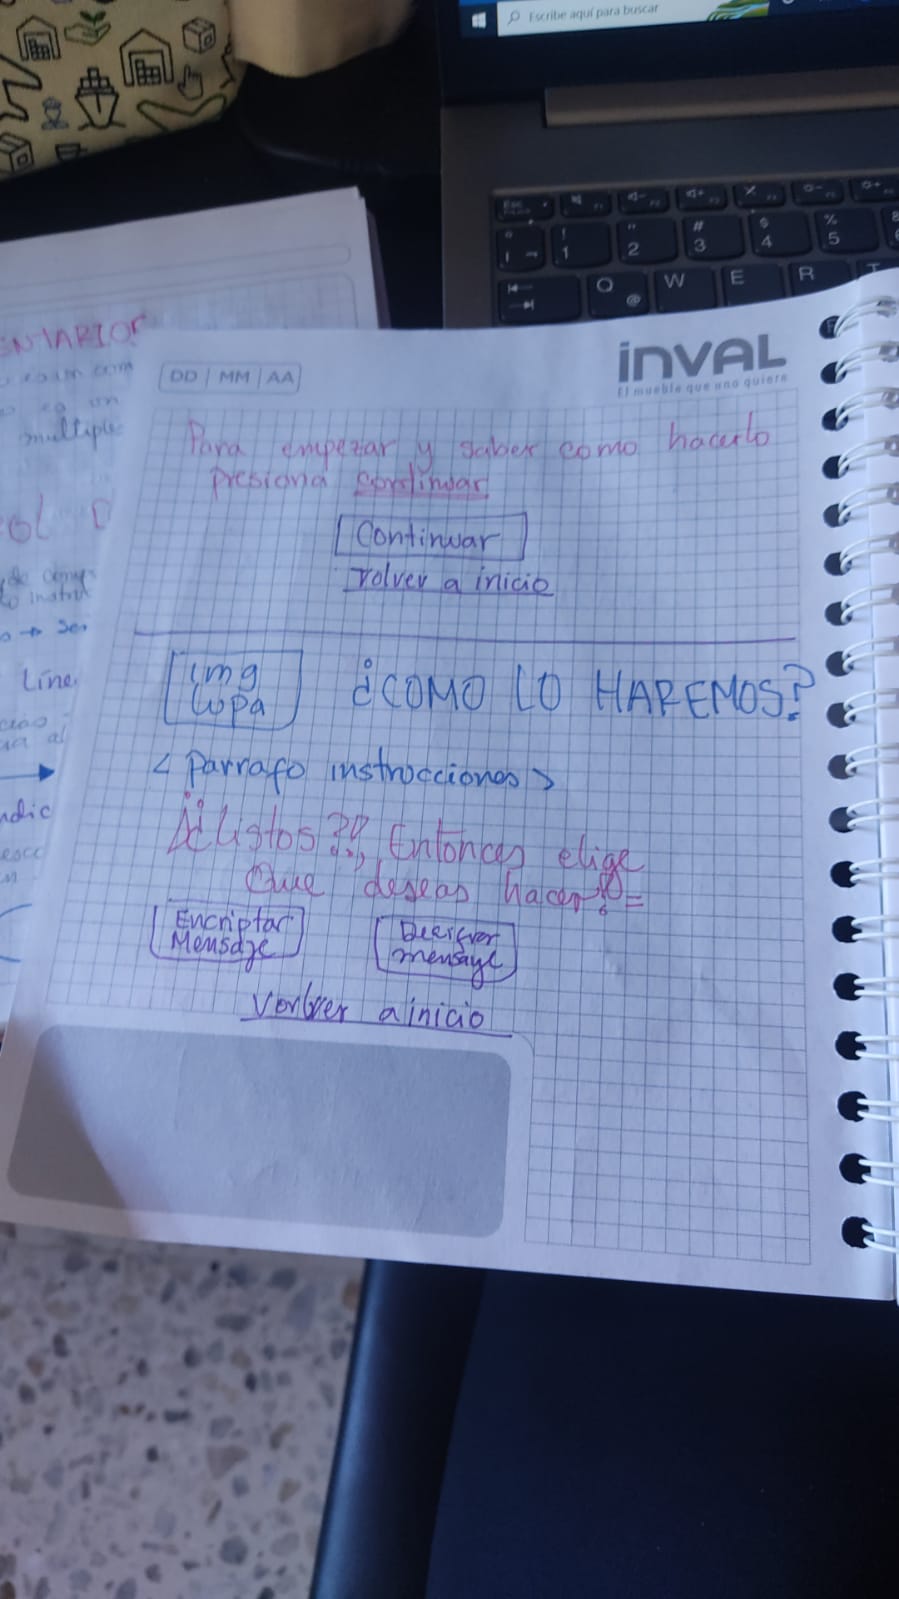 Escribe aquí para buscar
Esc
! 1
" 2
# 3
$ 4
% 5
Q @
W
E
R
T
ENTARIOS
multiple
Line
DD | MM | AA
inVAL
El mueble que uno quiere
Para empezar y saber como hacerlo
presiona continuar
Continuar
volver a inicio
img
lupa
¿COMO LO HAREMOS?
< parrafo instrucciones >
¡¿Listos??, Entonces elige
Que deseas hacer
Encriptar
Mensaje
Decifrar
mensaje
Vorlver a inicio